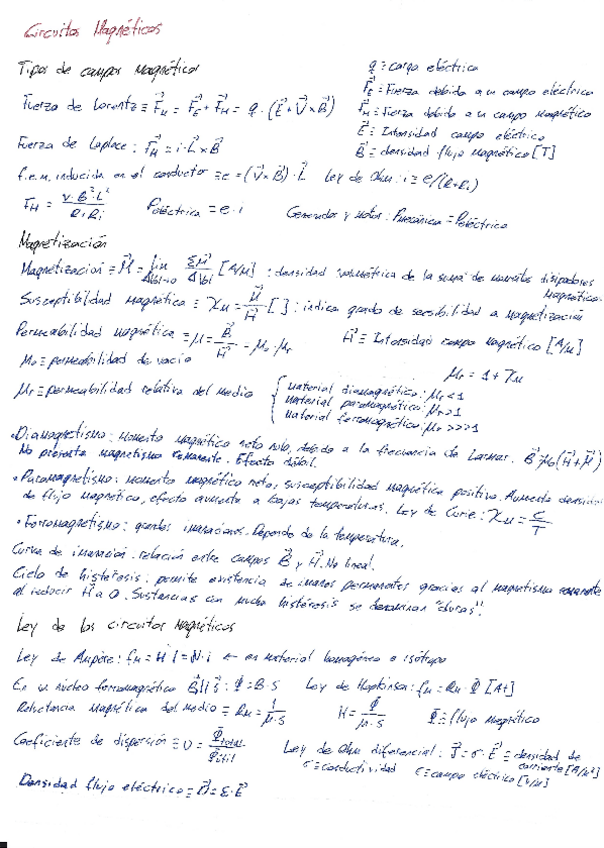 Circuitos Magnéticos
Tipos de campos magnéticos
q ≡ carga eléctrica
F⃗_E = Fuerza debida a un campo eléctrico
Fuerza de Lorentz ≡ F⃗_M = F⃗_E + F⃗_M = q · (E⃗ + V⃗ × B⃗)
F⃗_M = Fuerza debido a un campo magnético
E⃗ ≡ Intensidad campo eléctrico
Fuerza de Laplace: F⃗_M = i · L⃗ × B⃗
B⃗ ≡ densidad flujo magnético [T]
f.e.m. inducida en el conductor ≡ e = (V⃗ × B⃗) · L⃗ Ley de Ohm: i = e/(R+Ri)
F_M = V · B² · L² / R + Ri Peléctrica = e · i Generador y Motor: Pmecánica = Peléctrica
Magnetización
Magnetización ≡ M⃗ = lim Δ|b|→0 Σμ⃗ / Δ|b| [A/M] : densidad volumétrica de la suma de momentos
magnéticos.
Susceptibilidad magnética ≡ χ_M = M⃗/H⃗ [ ] : indica grado de sensibilidad a magnetización
Permeabilidad magnética ≡ μ = B⃗/H⃗ = μ₀ · μr H⃗ ≡ Intensidad campo magnético [A/M]
μ₀ ≡ permeabilidad de vacío μr = 1 + χ_M
μr ≡ permeabilidad relativa del medio { material diamagnético: μr < 1
material paramagnético: μr > 1
material ferromagnético: μr >>> 1
• Diamagnetismo: momento magnético neto nulo, debido a la frecuencia de Larmor. B⃗ = μ₀(H⃗ + M⃗)
No presenta magnetismo remanente. Efecto débil.
• Paramagnetismo: momento magnético neto, susceptibilidad magnética positiva. Aumenta densidad
de flujo magnético, efecto aumenta a bajas temperaturas. Ley de Curie: χ_M = C/T
• Ferromagnetismo: grandes imanaciones. Depende de la temperatura.
Curva de imanación: relación entre campos B⃗ y H⃗. No lineal.
Ciclo de histéresis: permite existencia de imanes permanentes gracias al magnetismo remanente
al reducir H a 0. Sustancias con mucha histéresis se denominan "duras".
Ley de los circuitos Magnéticos
Ley de Ampère: fm = H · l = N · i ← en material homogéneo e isótropo
En un núcleo ferromagnético B⃗ || S⃗ : Φ = B · S Ley de Hopkinson: fm = Rm · Φ [At]
Reluctancia Magnética del medio ≡ Rm = l / μ · S H = Φ / μ · S Φ ≡ flujo magnético
Coeficiente de dispersión ≡ υ = Φtotal / Φútil Ley de Ohm diferencial: J⃗ = σ · E⃗ ≡ densidad de
corriente [A/m²]
σ ≡ conductividad ε ≡ campo eléctrico [V/m]
Densidad flujo eléctrico ≡ D⃗ = ε · E⃗